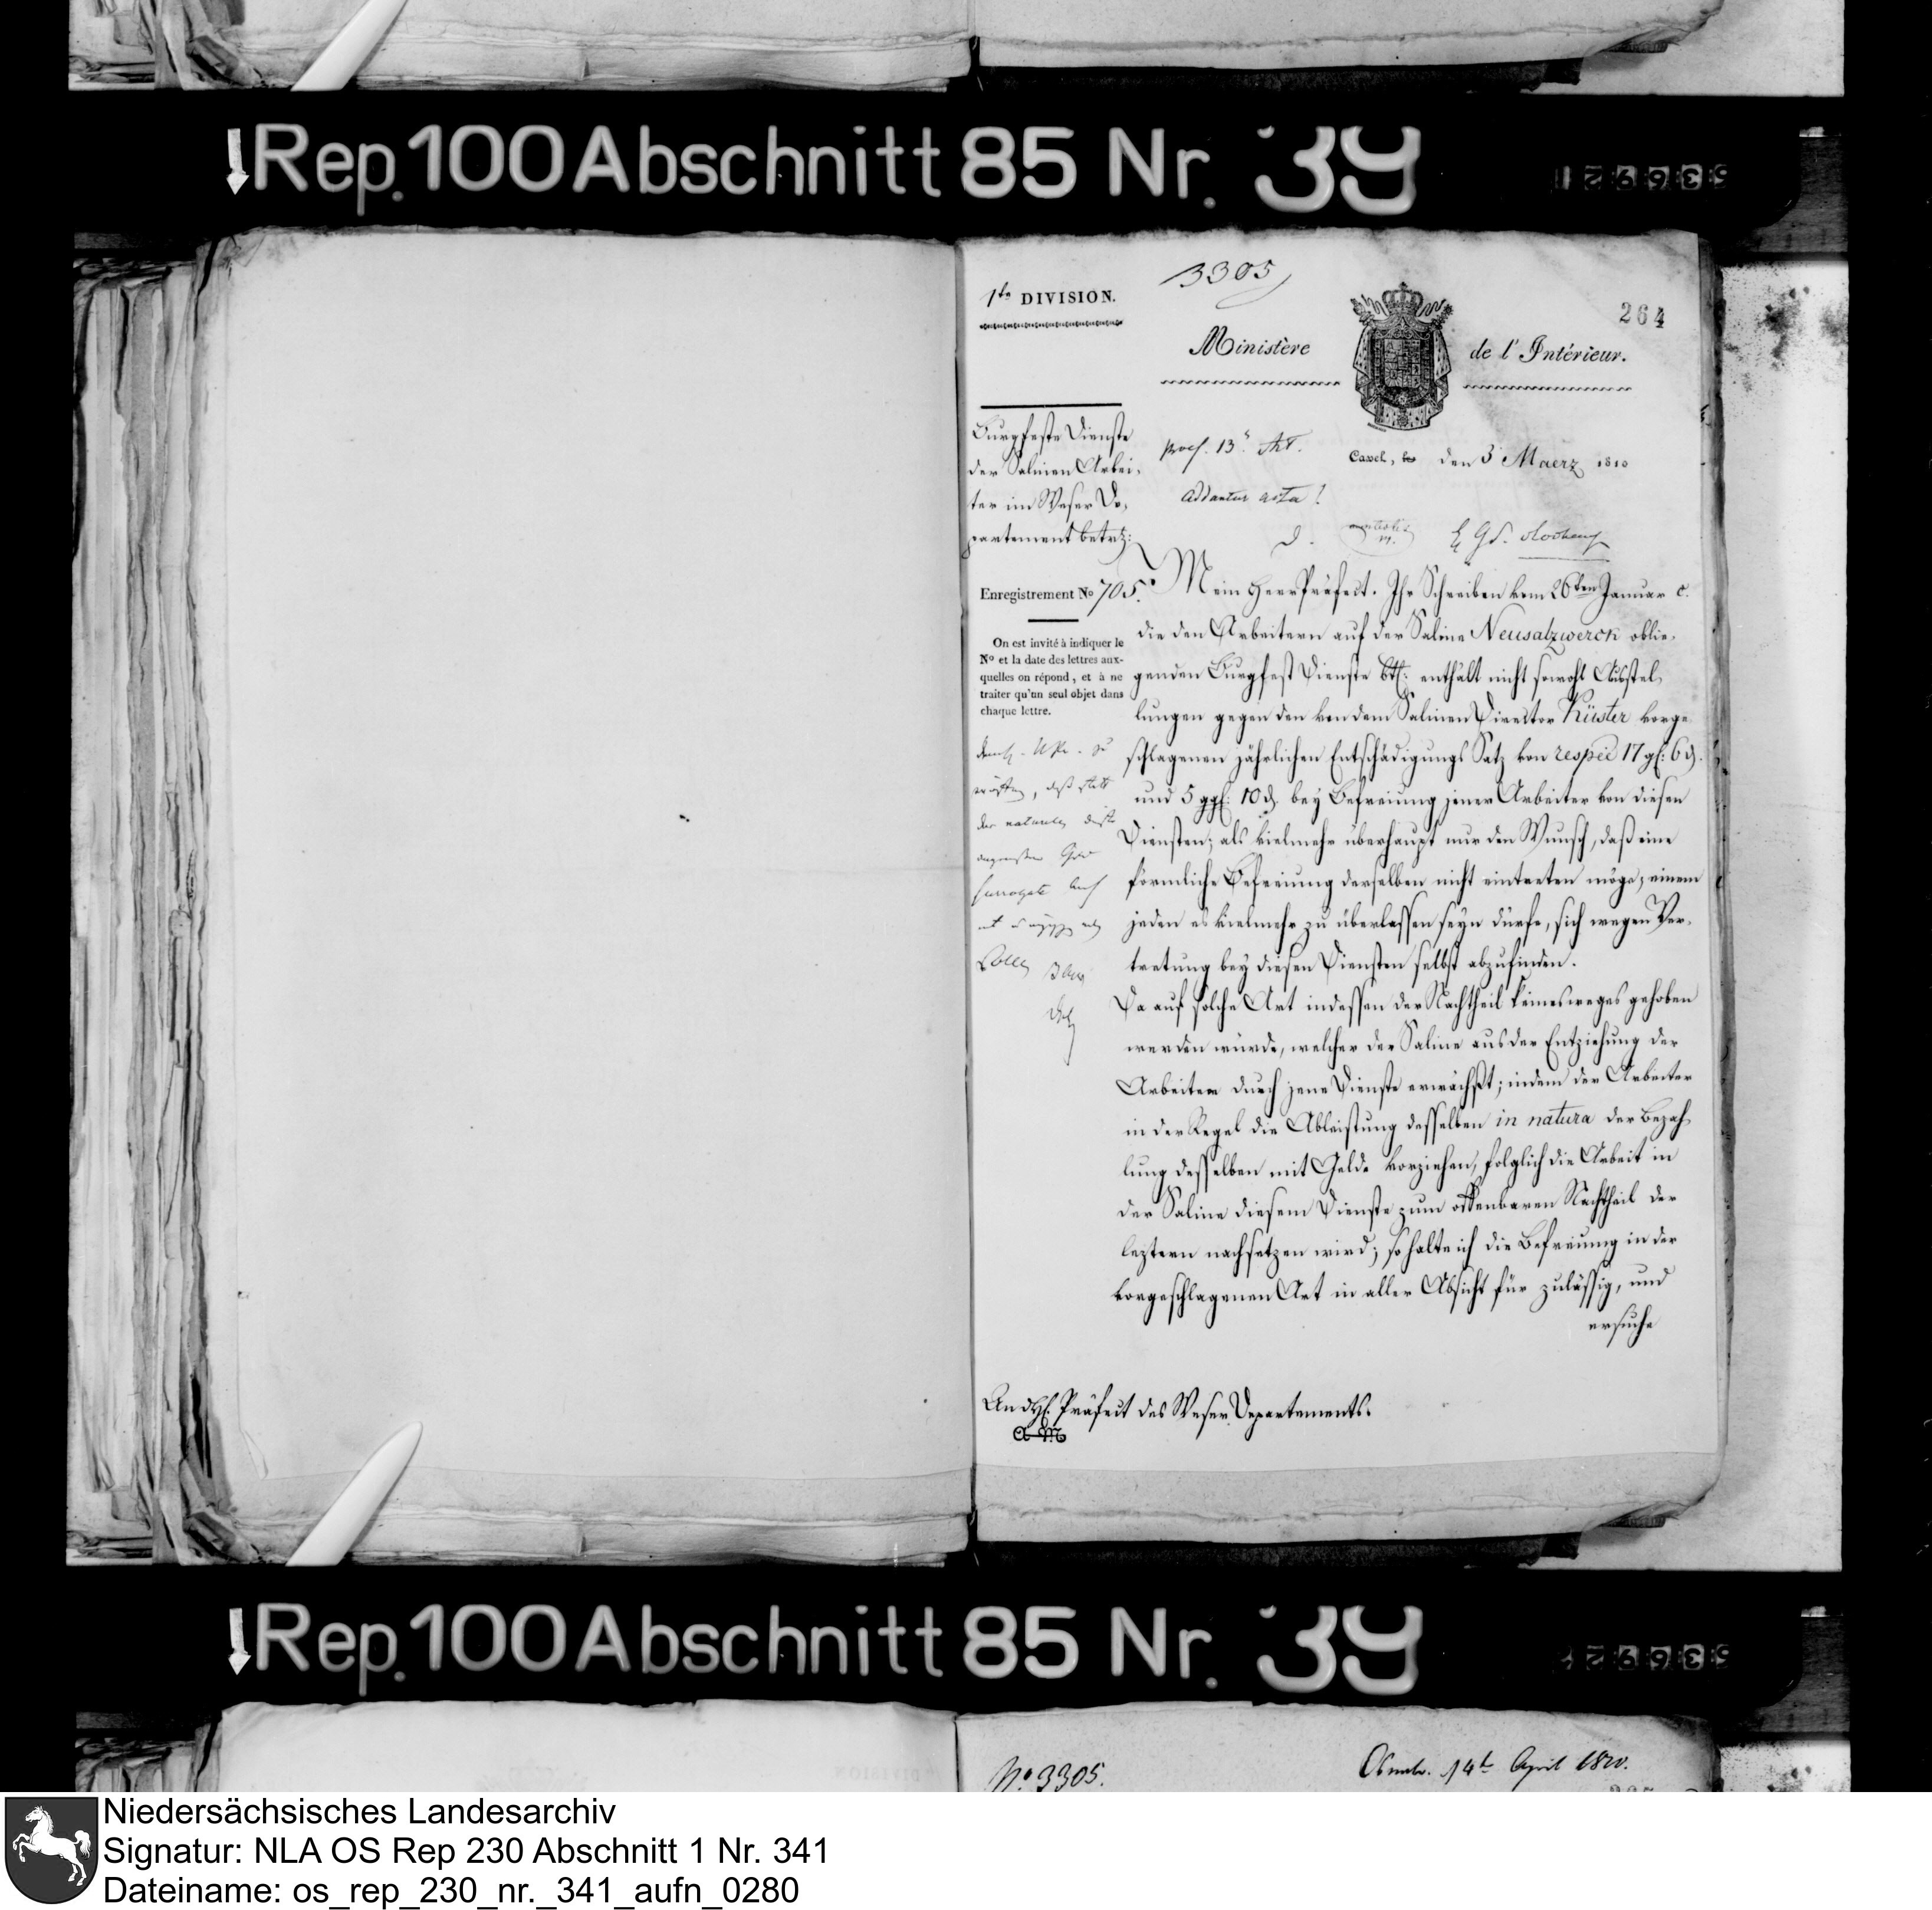 Rep. 100 Abschnitt 85 Nr. 39
3305
1te DIVISION.
264
Ministère de l'Intérieur.
Burgfeste Dienste
der Salinen Arbei-
ter im Weser De-
partement betr:
13 Art.
addantur acta!
Cassel, den 3 Maerz 1810
Enregistrement No 705.
On est invité à indiquer le
No et la date des lettres aux-
quelles on répond, et à ne
traiter qu'un seul objet dans
chaque lettre.
der naturellen
surrogate
Mein Herr Präfect. Ihr Schreiben vom 26ten Januar c.
die den Arbeitern auf der Saline Neusalzwerck oblie-
genden Burgfest Dienste btf: enthält nicht sowohl Ausstel-
lungen gegen den von dem Salinen Director Küster vorge-
schlagenen jährlichen Entschädigungs Satz von respec 17 gf: 6 d.
und 5 ggf: 10 d. bey Befreiung jener Arbeiter von diesen
Diensten; als vielmehr überhaupt nur den Wunsch, daß eine
förmliche Befreiung derselben nicht eintreten möge, einem
jeden es vielmehr zu überlassen seyn dürfe, sich wegen Ver-
tretung bey diesen Diensten selbst abzufinden.
Da auf solche Art indessen der Nachtheil keinesweges gehoben
werden würde, welcher der Saline aus der Entziehung der
Arbeiter durch jene Dienste erwächst; indem der Arbeiter
in der Regel die Ableistung desselben in natura der Bezah-
lung desselben mit Gelde vorziehen, folglich die Arbeit in
der Saline diesem Dienste zum offenbaren Nachtheil der
leztern nachsetzen wird; so halte ich die Befreiung in der
vorgeschlagenen Art in aller Absicht für zulässig, und
ersuche
An d. H. Präfect des Weser Departements.
Rep. 100 Abschnitt 85 Nr. 39
No. 3305.
Osnabr. 14t April 1810.
Niedersächsisches Landesarchiv
Signatur: NLA OS Rep 230 Abschnitt 1 Nr. 341
Dateiname: os_rep_230_nr._341_aufn_0280